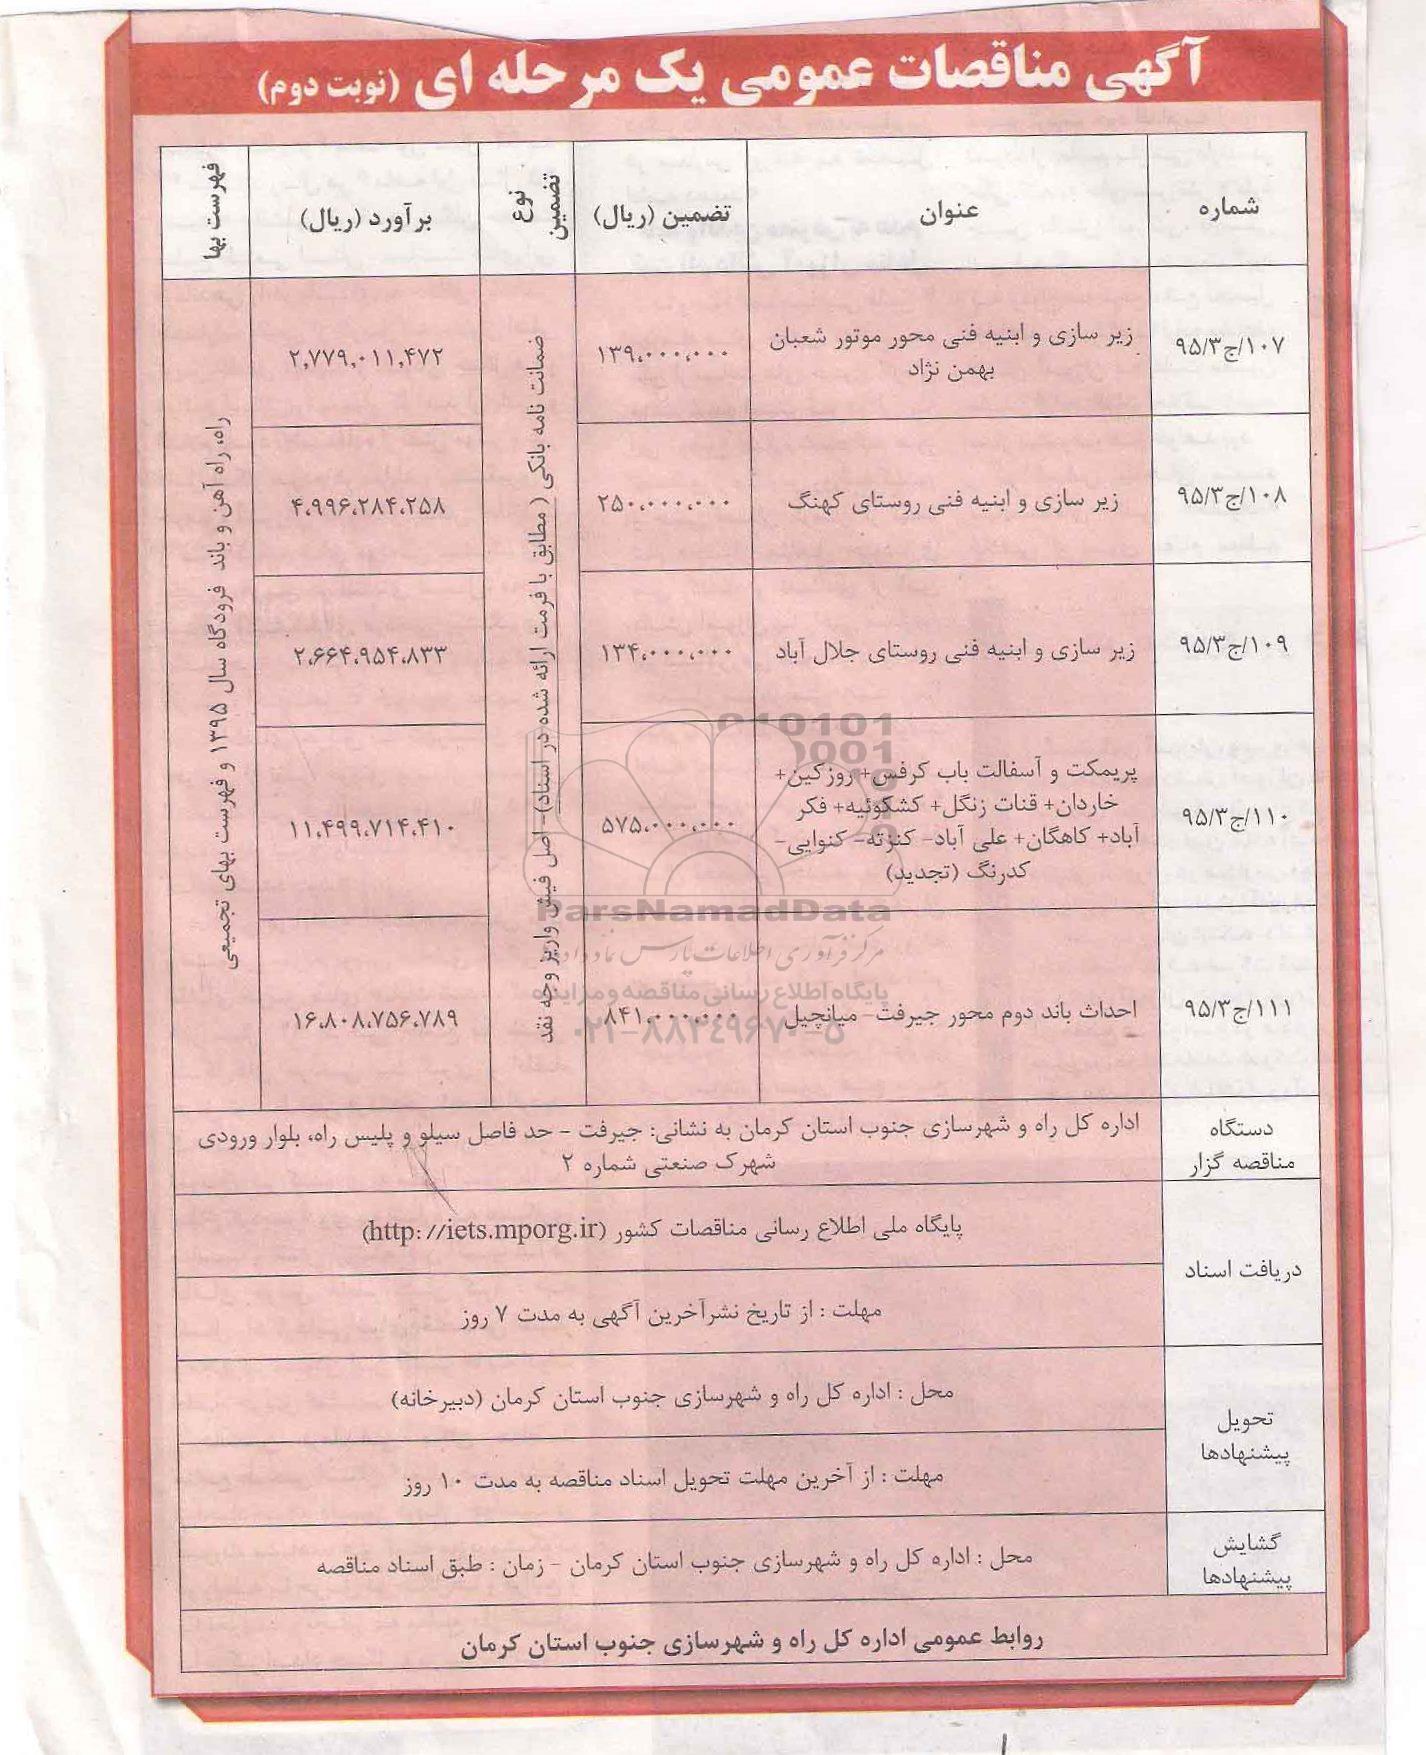 آگهی مناقصات عمومی یک مرحله ای (نوبت دوم)
شماره
عنوان
تضمین (ریال)
نوع
تضمین
برآورد (ریال)
فهرست بها
۱۰۷/ج/۹۵/۳
زیر سازی و ابنیه فنی محور موتور شعبان
بهمن نژاد
۱۳۹،۰۰۰،۰۰۰
۲،۷۷۹،۰۱۱،۴۷۲
۱۰۸/ج/۹۵/۳
زیر سازی و ابنیه فنی روستای کهنگ
۲۵۰،۰۰۰،۰۰۰
۴،۹۹۶،۲۸۴،۲۵۸
۱۰۹/ج/۹۵/۳
زیر سازی و ابنیه فنی روستای جلال آباد
۱۳۴،۰۰۰،۰۰۰
۲،۶۶۴،۹۵۴،۸۳۳
۱۱۰/ج/۹۵/۳
پریمکت و آسفالت باب کرفس+ روزکین+
خاردان+ قنات زنگل+ کشکوئیه+ فکر
آباد+ کاهگان+ علی آباد- کنزته- کنوایی-
کدرنگ (تجدید)
۵۷۵،۰۰۰،۰۰۰
۱۱،۴۹۹،۷۱۴،۴۱۰
۱۱۱/ج/۹۵/۳
احداث باند دوم محور جیرفت- میانچیل
۸۴۱،۰۰۰،۰۰۰
۱۶،۸۰۸،۷۵۶،۷۸۹
ضمانت نامه بانکی ( مطابق با فرمت ارائه شده در اسناد)- اصل فیش واریز وجه نقد
راه، راه آهن و باند فرودگاه سال ۱۳۹۵ و فهرست بهای تجمیعی
دستگاه
مناقصه گزار
اداره کل راه و شهرسازی جنوب استان کرمان به نشانی: جیرفت - حد فاصل سیلو و پلیس راه، بلوار ورودی
شهرک صنعتی شماره ۲
دریافت اسناد
پایگاه ملی اطلاع رسانی مناقصات کشور (http://iets.mporg.ir)
مهلت : از تاریخ نشرآخرین آگهی به مدت ۷ روز
تحویل
پیشنهادها
محل : اداره کل راه و شهرسازی جنوب استان کرمان (دبیرخانه)
مهلت : از آخرین مهلت تحویل اسناد مناقصه به مدت ۱۰ روز
گشایش
پیشنهادها
محل : اداره کل راه و شهرسازی جنوب استان کرمان - زمان : طبق اسناد مناقصه
روابط عمومی اداره کل راه و شهرسازی جنوب استان کرمان
ParsNamadData
مرکز فرآوری اطلاعات پارس نماد داده
پایگاه اطلاع رسانی مناقصه و مزایده
۰۲۱-۸۸۳۴۹۶۷۰-۵